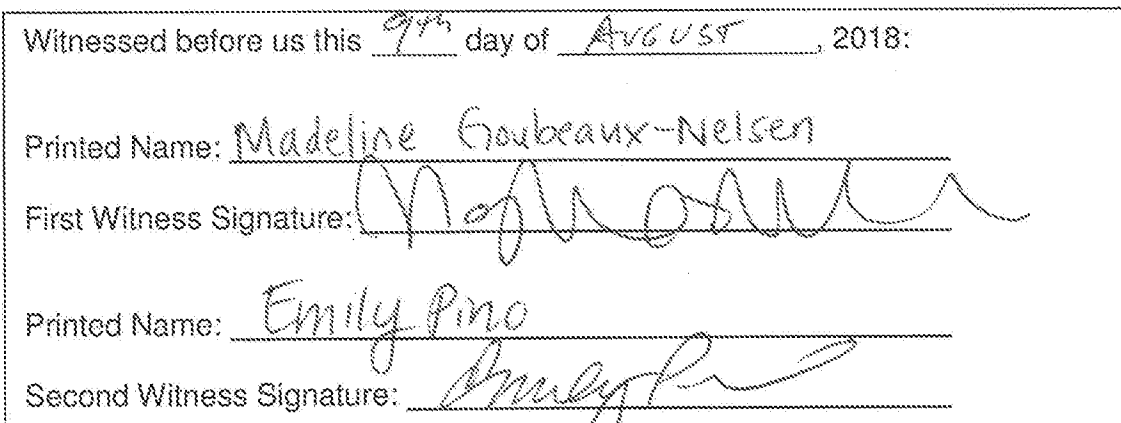 Witnessed before us this 9th day of August, 2018:
Printed Name: Madeline Goubeaux-Nelsen
First Witness Signature:
Printed Name: Emily Pino
Second Witness Signature: Emily P